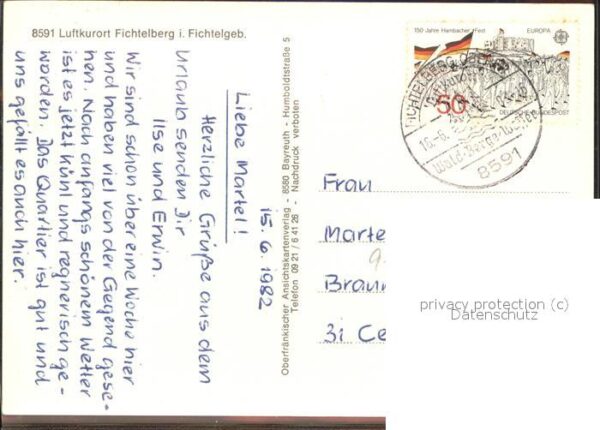 8591 Luftkurort Fichtelberg i. Fichtelgeb.
15.6.1982
Liebe Martel!
Herzliche Grüße aus dem
Urlaub senden Dir
Ilse und Erwin.
Wir sind schon über eine Woche hier
und haben viel von der Gegend gese-
hen. Nach anfangs schönem Wetter
ist es jetzt kühl und regnerisch ge-
worden. Das Quartier ist gut und
uns gefällt es auch hier.
Oberfränkischer Ansichtskartenverlag - 8580 Bayreuth - Humboldtstraße 5
Telefon 09 21 / 6 41 26 - Nachdruck verboten
150 Jahre Hambacher Fest
EUROPA
CEPT
50
DEUTSCHE BUNDESPOST
FICHTELBERG, OBERFR
Luftkurort
16.-6.
Wald-Berge-Wasser
8591
Frau
Marte
Braun
31 Ce
privacy protection (c)
Datenschutz